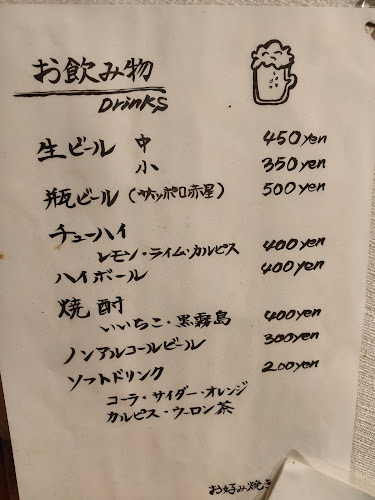 お飲み物
Drinks
生ビール 中 450yen
小 350yen
瓶ビール(サッポロ赤星) 500yen
チューハイ
レモン・ライム・カルピス 400yen
ハイボール 400yen
焼酎
いいちこ・黒霧島 400yen
ノンアルコールビール 300yen
ソフトドリンク 200yen
コーラ・サイダー・オレンジ
カルピス・ウーロン茶
お好み焼き